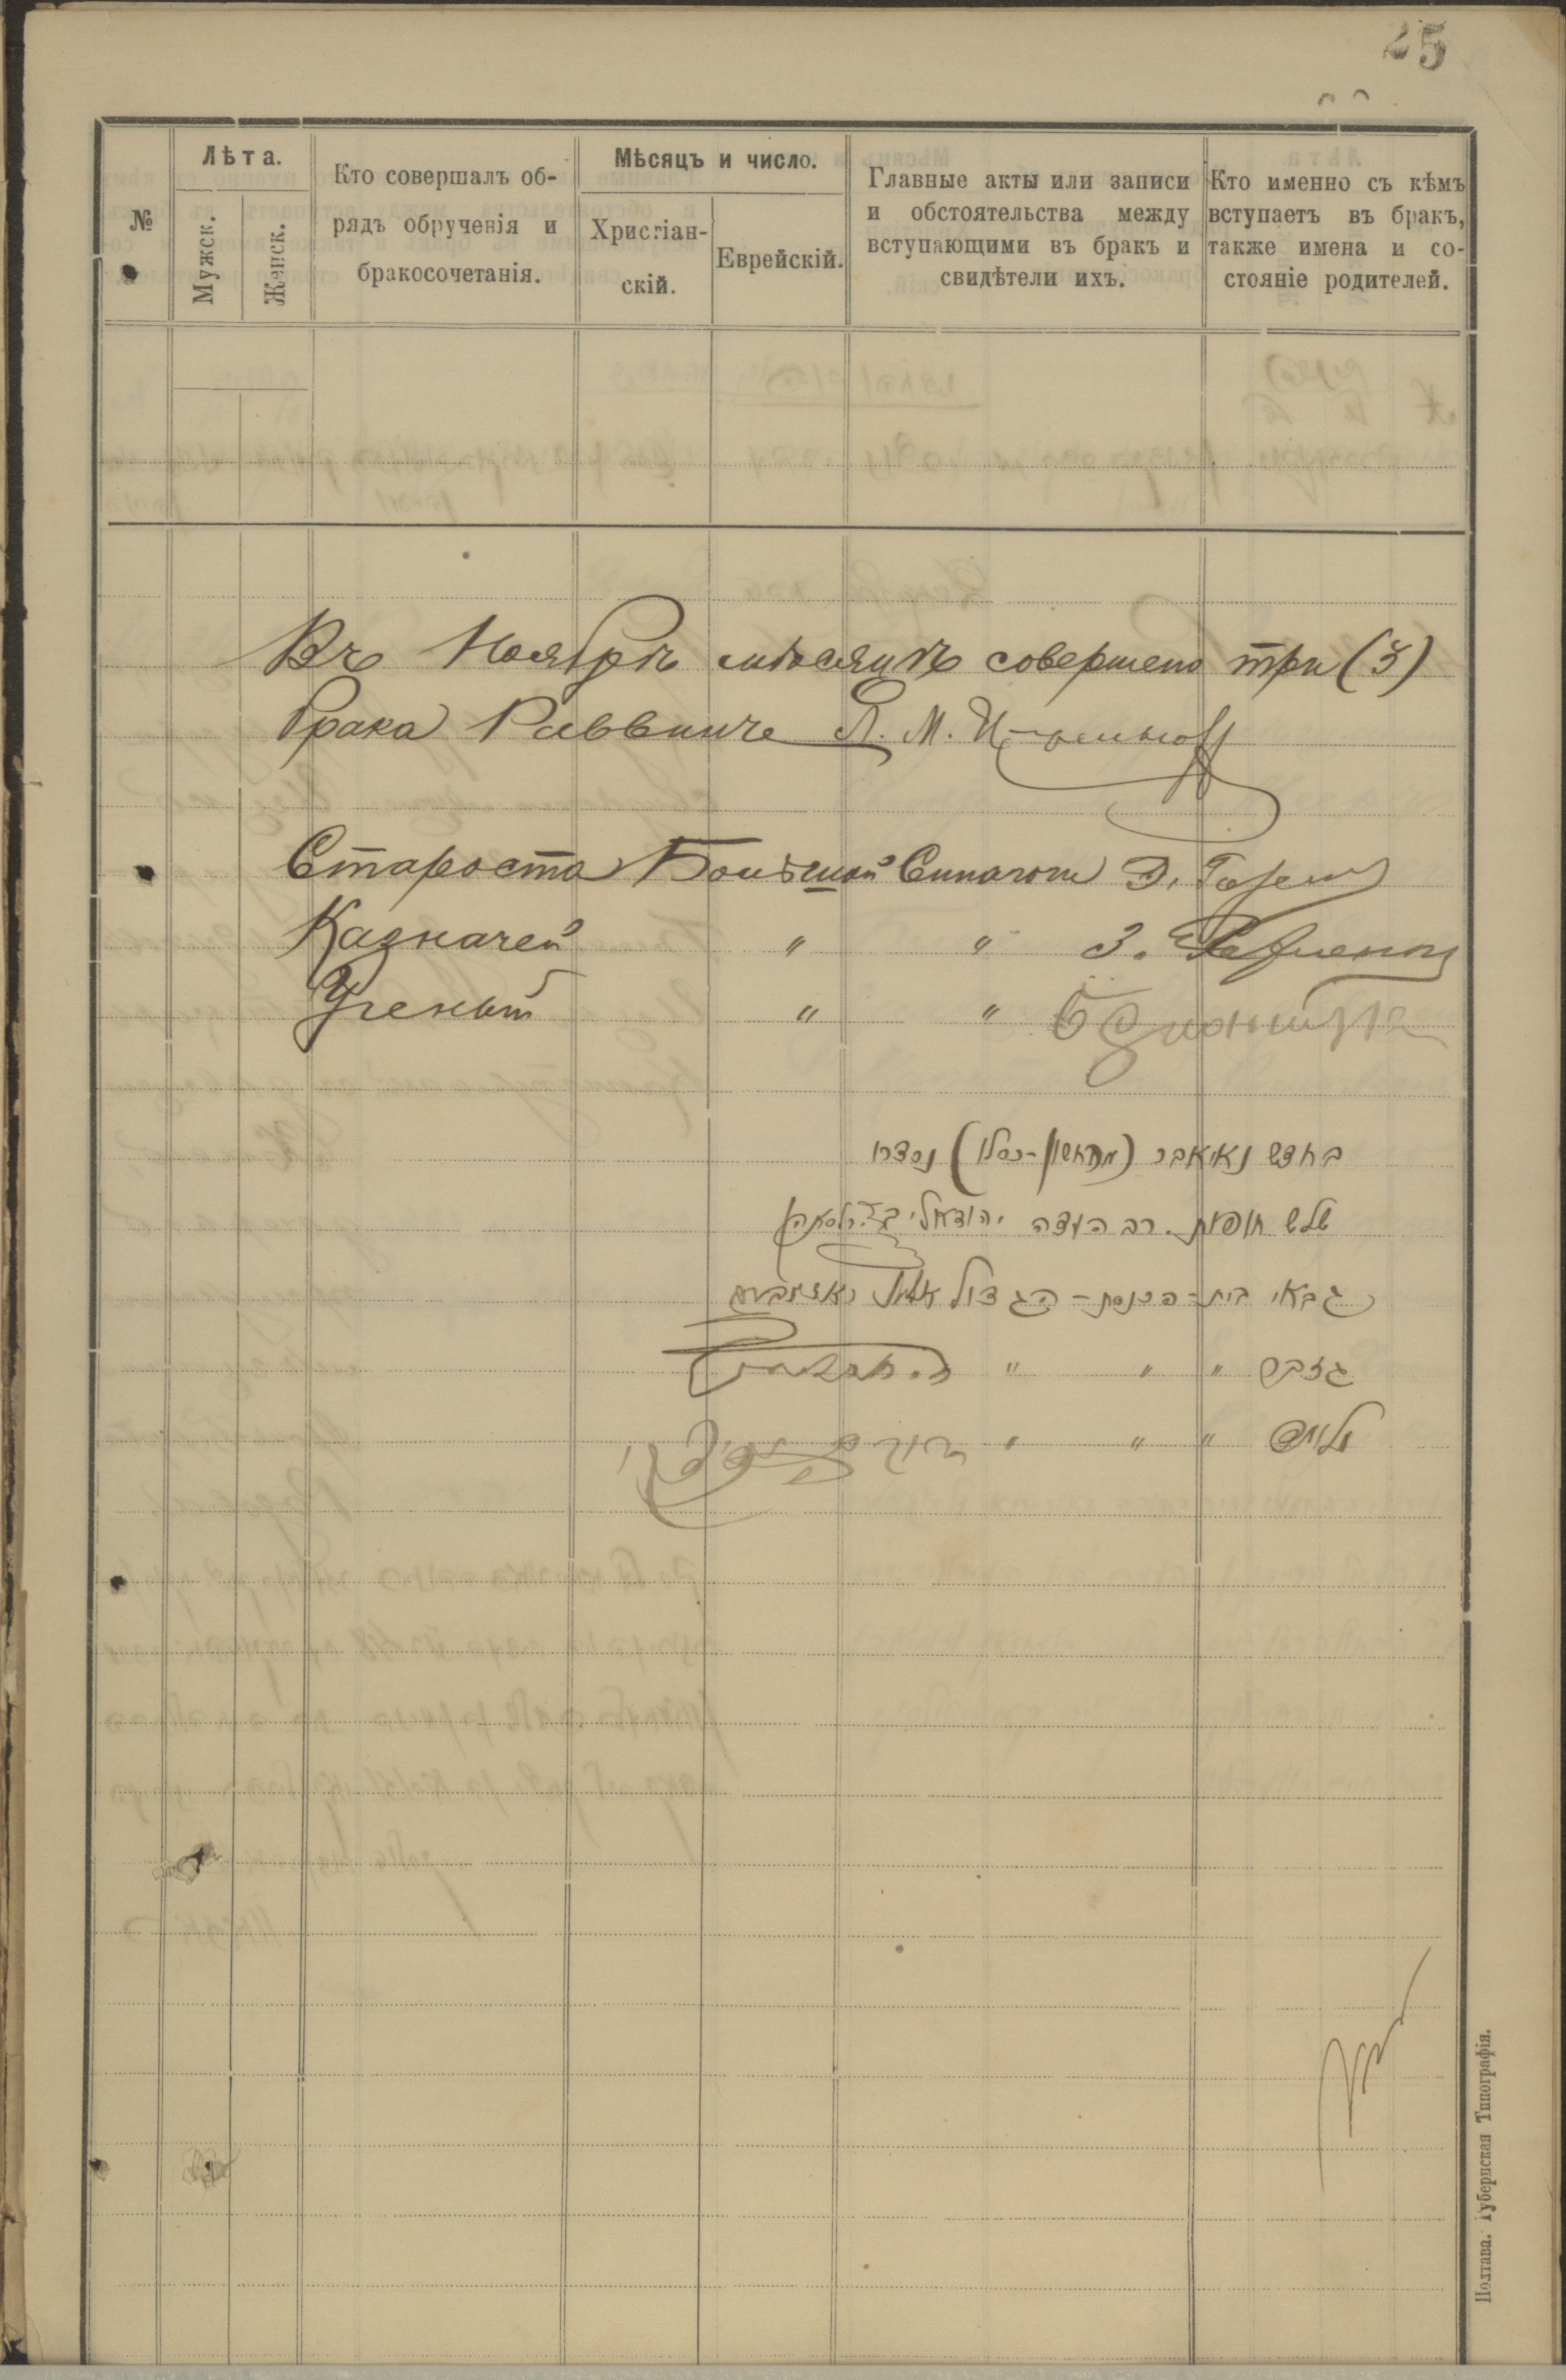 25
№
Лѣта.
Мужск.
Женск.
Кто совершалъ об-
рядъ обрученія и
бракосочетанія.
Мѣсяцъ и число.
Христіан-
скій.
Еврейскій.
Главные акты или записи
и обстоятельства между
вступающими въ бракъ и
свидѣтели ихъ.
Кто именно съ кѣмъ
вступаетъ въ бракъ,
также имена и со-
стояніе родителей.
Въ Ноябрѣ мѣсяцѣ совершено три (3)
брака Раввинъ А. М.
Староста Большой Синагоги Э.
Казначей " " З.
Ученый " "
בחדש נאיאבר (מרחשון-כסלו) נסדרו
שלש חופות. רב העדה
גבאי בית-הכנסת-הגדול
גזבר " " "
מלומד " " "
Полтава. Губернская Типографія.